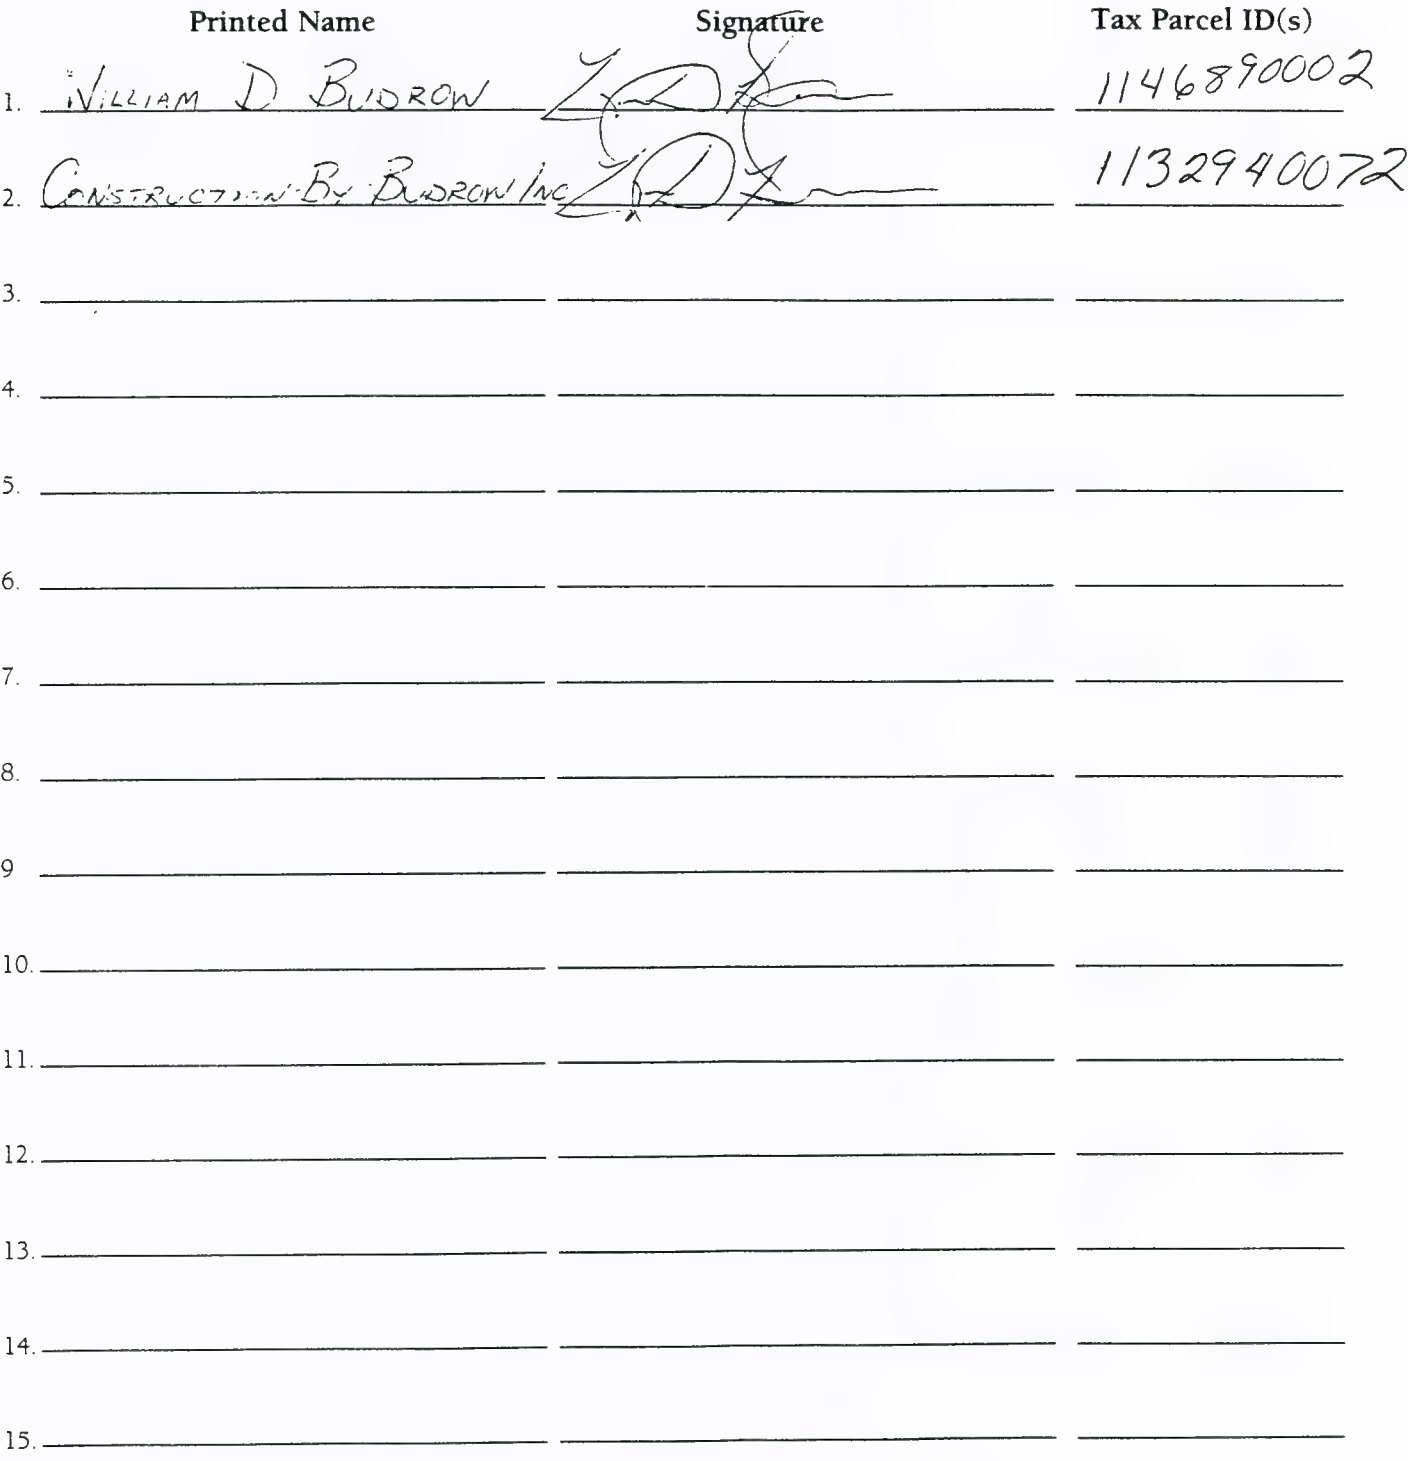 Printed Name Signature Tax Parcel ID(s)
1. WILLIAM D BUDROW 1146890002
2. CONSTRUCTION BY BUDROW INC 1132940072
3.
4.
5.
6.
7.
8.
9
10.
11.
12.
13.
14.
15.